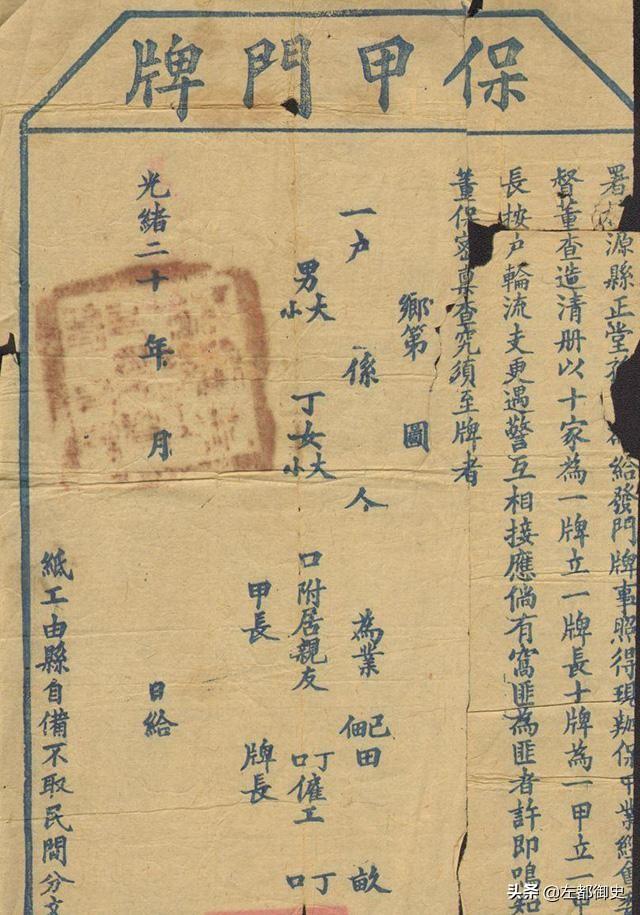 保甲門牌
署 源縣正堂 給發門牌事照得現辦保甲業經會
督董查造清册以十家為一牌立一牌長十牌為一甲立一甲
長按戶輪流支更遇警互相接應倘有窩匪為匪者許即鳴知
董保密稟查究須至牌者
鄉第 圖
一戶 係 人 為業 己佃田 畝
男大小 丁 女大小 口 附居親友 丁口 僱工 丁口
甲長 牌長
光緒二十 年 月 日給
紙工由縣自備不取民間分文
头条 @左都御史